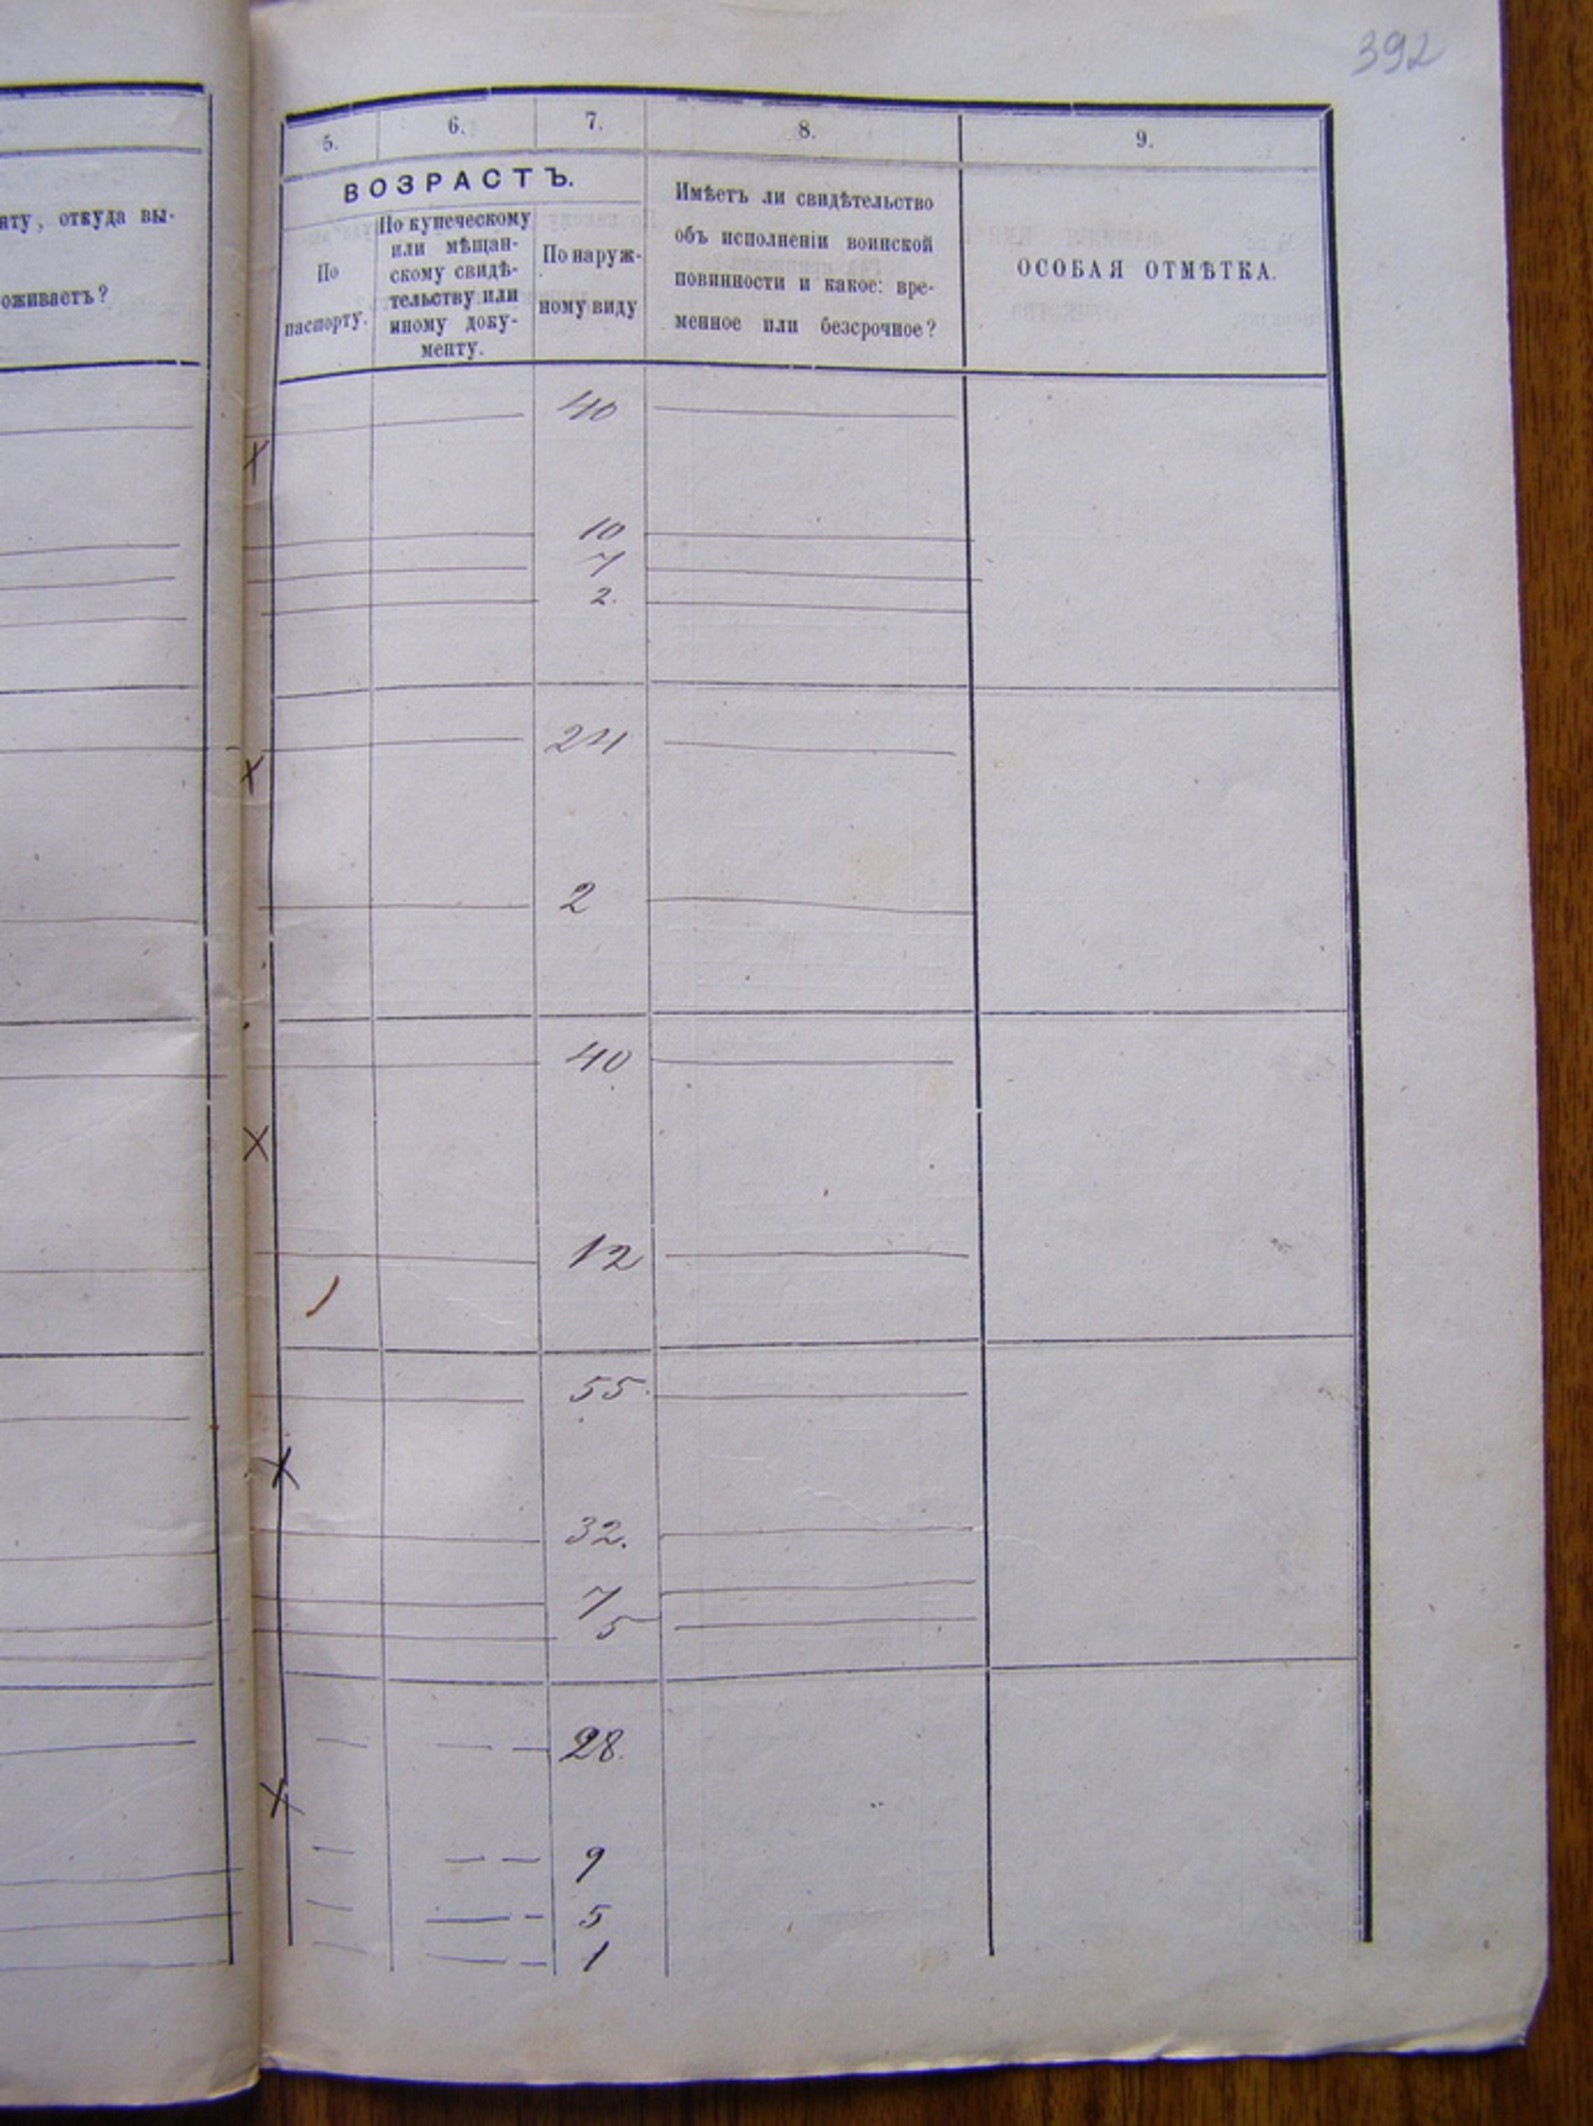 392
5. 6. 7. 8. 9.
ВОЗРАСТЪ.
откуда вы-
По
паспорту.
По купеческому
или мѣщан-
скому свидѣ-
тельству или
иному доку-
менту.
По наруж-
ному виду
Имѣетъ ли свидѣтельство
объ исполненіи воинской
повинности и какое: вре-
менное или безсрочное?
ОСОБАЯ ОТМѢТКА.
оживаетъ?
40
10
7
2.
24
2
40
12
55
32.
7
5
28.
9
5
1